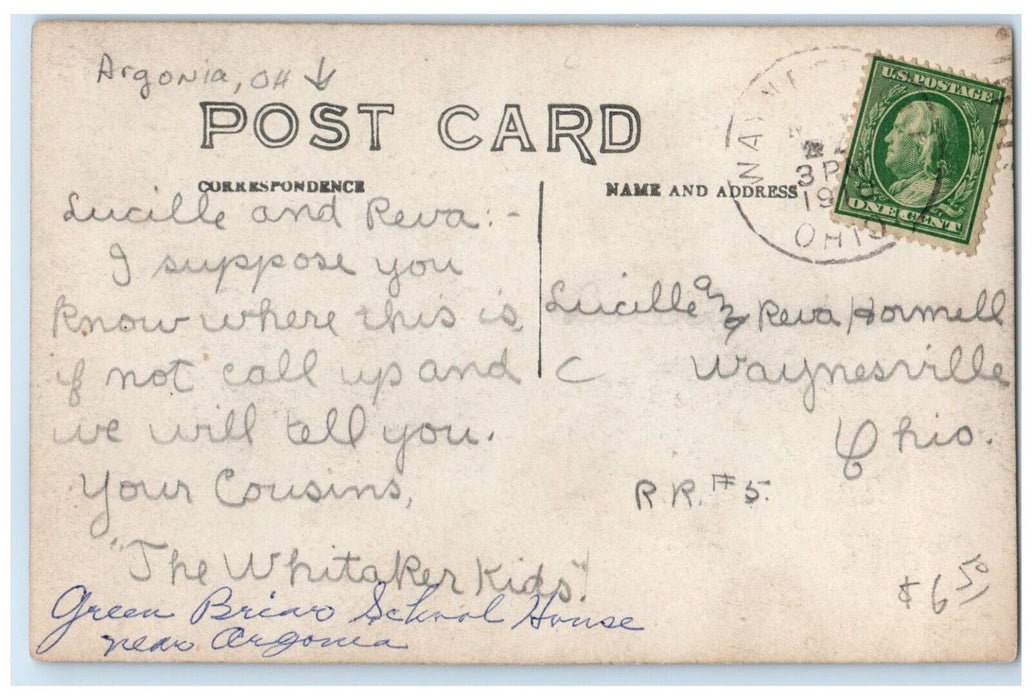 Argonia, OH ↓
POST CARD
CORRESPONDENCE
NAME AND ADDRESS
Lucille and Reva:-
I suppose you
know where this is
if not call up and
we will tell you.
Your Cousins,
"The Whitaker Kids".
Green Briar School House
near Argonia
U.S. POSTAGE
ONE CENT
3 P
19
OHIO
Lucille and Reva Hormell
Waynesville
Ohio.
R.R. #5.
$6.50